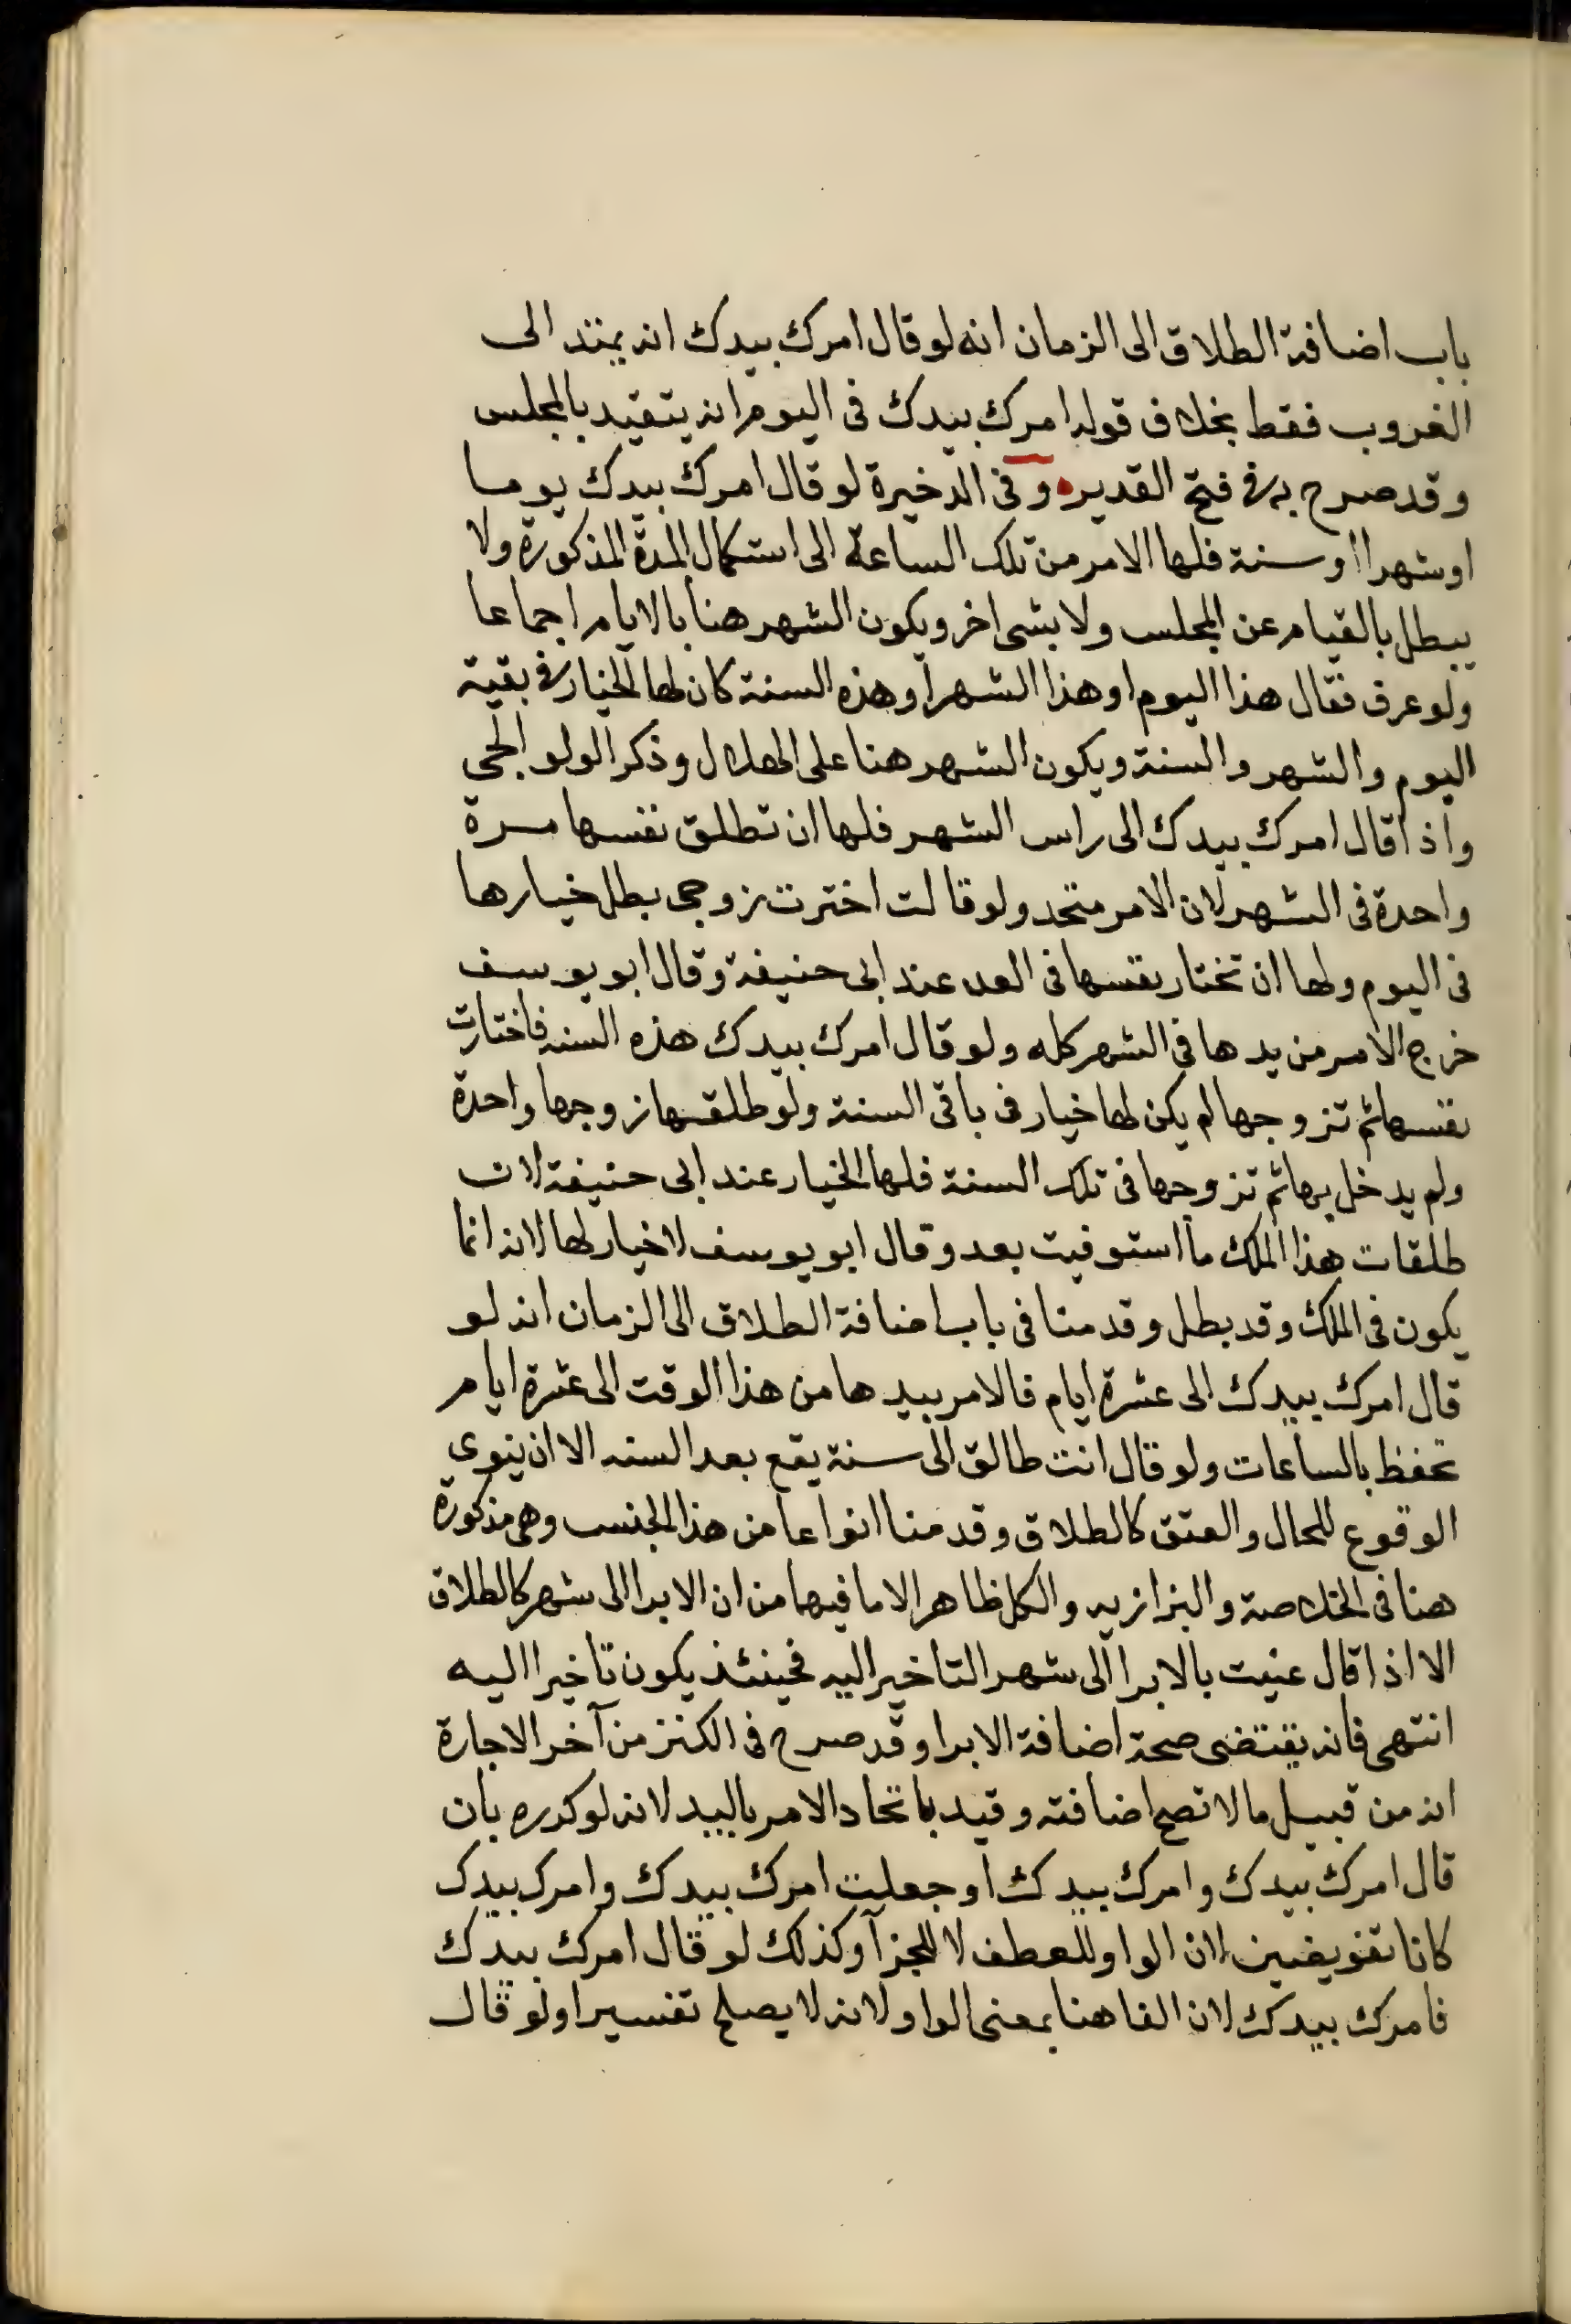 باب اضافة الطلاق الى الزمان انه لو قال امرك بيدك انه يمتد الى
الغروب فقط بخلاف قوله امرك بيدك فى اليوم انه يتقيد بالمجلس
وقد صرح به فى فتح القدير وفى الذخيرة لو قال امرك بيدك يوما
او شهرا او سنة فلها الامر من تلك الساعة الى استكمال المدة المذكورة ولا
يبطل بالقيام عن المجلس ولا بشى اخر ويكون الشهر هنا بالايام اجماعا
ولو عرف فقال هذا اليوم او هذا الشهر او هذه السنة كان لها الخيار فى بقية
اليوم والشهر والسنة ويكون الشهر هنا على الهلال وذكر الولوالجى
واذا قال امرك بيدك الى راس الشهر فلها ان تطلق نفسها مرة
واحدة فى الشهر لان الامر متحد ولو قالت اخترت زوجى بطل خيارها
فى اليوم ولها ان تختار نفسها فى الغد عند ابى حنيفة وقال ابو يوسف
خرج الامر من يدها فى الشهر كله ولو قال امرك بيدك هذه السنه فاختارت
نفسها ثم تزوجها لم يكن لها خيار فى باقى السنة ولو طلقها زوجها واحدة
ولم يدخل بها ثم تزوجها فى تلك السنة فلها الخيار عند ابى حنيفة لان
طلقات هذا الملك ما استوفيت بعد وقال ابو يوسف لا خيار لها لانه انما
يكون فى الملك وقد بطل وقدمنا فى باب اضافة الطلاق الى الزمان انه لو
قال امرك بيدك الى عشرة ايام فالامر بيدها من هذا الوقت الى عشرة ايام
تحفظ بالساعات ولو قال انت طالق الى سنة يقع بعد السنه الا ان ينوى
الوقوع للحال والعتق كالطلاق وقدمنا انواعا من هذا الجنس وهى مذكورة
هنا فى الخلاصة والبزازيه والكل ظاهر الا ما فيهما من ان الابرا الى شهر كالطلاق
الا اذا قال عنيت بالابرا الى شهر التاخير اليه فحينئذ يكون تاخيرا اليه
انتهى فانه يقتضى صحة اضافة الابرا وقد صرح فى الكنز من آخر الاجارة
انه من قبيل ما لا تصح اضافته وقيد باتحاد الامر باليد لانه لو كرره بان
قال امرك بيدك وامرك بيدك او جعلت امرك بيدك وامرك بيدك
كانا تفويضين لان الواو للعطف لا للجزآ وكذلك لو قال امرك بيدك
فامرك بيدك لان الفا هنا بمعنى الواو لانه لا يصلح تفسيرا ولو قال